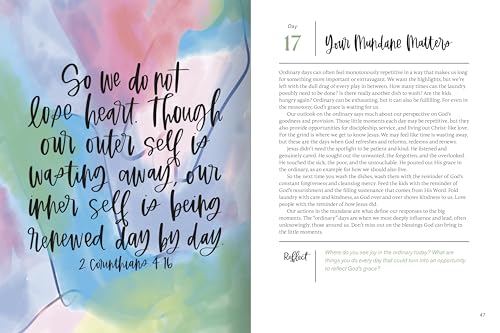 So we do not
lose heart. Though
our outer self is
wasting away, our
inner self is being
renewed day by day.
2 Corinthians 4:16
Day
17
Your Mundane Matters
Ordinary days can often feel monotonously repetitive in a way that makes us long
for something more important or extravagant. We want the highlights, but we're
left with the dull drag of every play in between. How many times can the laundry
possibly need to be done? Is there really another dish to wash? Are the kids
hungry again? Ordinary can be exhausting, but it can also be fulfilling. For even in
the monotony, God's grace is waiting for us.
Our outlook on the ordinary says much about our perspective on God's
goodness and provision. Those little moments each day may be repetitive, but they
also provide opportunities for discipleship, service, and living out Christ-like love.
For the grind is where we get to know Jesus. We may feel like time is wasting away,
but these are the days when God refreshes and reforms, redeems and renews.
Jesus didn't need the spotlight to be patient and kind. He listened and
genuinely cared. He sought out the unwanted, the forgotten, and the overlooked.
He touched the sick, the poor, and the untouchable. He poured out His grace in
the ordinary, as an example for how we should also live.
So the next time you wash the dishes, wash them with the reminder of God's
constant forgiveness and cleansing mercy. Feed the kids with the reminder of
God's nourishment and the filling sustenance that comes from His Word. Fold
laundry with care and kindness, as God over and over shows kindness to us. Love
people with the reminder of how Jesus did.
Our actions in the mundane are what define our responses to the big
moments. The "ordinary" days are when we most deeply influence and lead, often
unknowingly, those around us. Don't miss out on the blessings God can bring in
the little moments.
Reflect
Where do you see joy in the ordinary today? What are
things you do every day that could turn into an opportunity
to reflect God's grace?
47